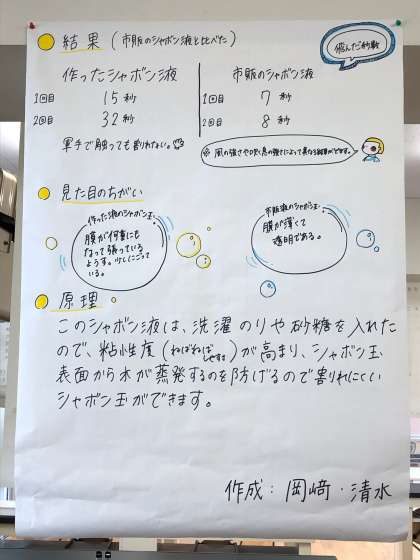 結果 (市販のシャボン液と比べた)
飛んだ秒数
作ったシャボン液
1回目 15秒
2回目 32秒
軍手で触っても割れない。
市販のシャボン液
1回目 7秒
2回目 8秒
※風の強さや吹く息の強さによって異なる結果がでます。
見た目のちがい
作った液のシャボン玉
膜が何重にも
なって張っている
ようす。少しにごって
いる。
市販液のシャボン玉
膜が薄くて
透明である。
原理
このシャボン液は、洗濯のりや砂糖を入れた
ので、粘性度(ねばねばしやすさ)が高まり、シャボン玉
表面から水が蒸発するのを防げるので割れにくい
シャボン玉ができます。
作成:岡﨑・清水